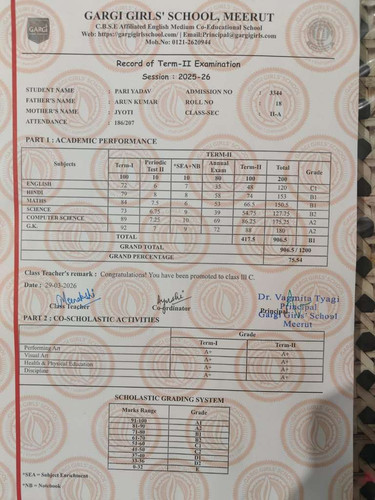 GARGI GIRLS' SCHOOL, MEERUT
C.B.S.E Affiliated English Medium Co-Educational School
Web: https://gargigirlsschool.com/ | Email:Principal@gargigirls.com
Mob.No: 0121-2620944
GARGI
Record of Term-II Examination
Session : 2025-26
STUDENT NAME : PARI YADAV ADMISSION NO : 3344
FATHER'S NAME : ARUN KUMAR ROLL NO : 18
MOTHER'S NAME : JYOTI CLASS-SEC : II-A
ATTENDANCE : 186/207
PART 1 : ACADEMIC PERFORMANCE
TERM-II
Subjects Term-I Periodic Test II *SEA+NB Annual Exam Term-II Total Grade
100 10 10 80 100 200
ENGLISH 72 6 7 35 48 120 C1
HINDI 79 8 8 58 74 153 B1
MATHS 84 7.5 6 53 66.5 150.5 B1
SCIENCE 73 6.75 9 39 54.75 127.75 B2
COMPUTER SCIENCE 89 7.25 10 69 86.25 175.25 A2
G.K. 92 9 72 88 180 A2
TOTAL 417.5 906.5 B1
GRAND TOTAL 906.5 / 1200
GRAND PERCENTAGE 75.54
Class Teacher's remark : Congratulations! You have been promoted to class III C.
Date : 29-03-2026
Class Teacher Co-ordinator Principal
Dr. Vagmita Tyagi
Principal
Gargi Girls' School
Meerut
PART 2 : CO-SCHOLASTIC ACTIVITIES
Grade
Term-I Term-II
Performing Art A+ A+
Visual Art A+ A+
Health & Physical Education A+ A+
Discipline A+ A+
SCHOLASTIC GRADING SYSTEM
Marks Range Grade
91-100 A1
81-90 A2
71-80 B1
61-70 B2
51-60 C1
41-50 C2
37-40 D1
33-36 D2
0-32 E
*SEA = Subject Enrichment
*NB = Notebook